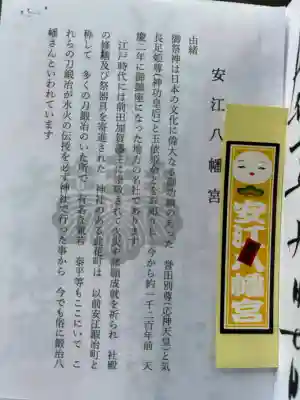 安江八幡宮
由緒
御祭神は日本の文化に偉大なる御功績のあった 誉田別尊(応神天皇)と気
長足姫尊(神功皇后)と玉依姫命をお祀りし 今から約一千二百年前 天
慶二年に御鎮座になった地方の名社であります
江戸時代には前田加賀藩主に尊敬されて火災や諸願成就を祈られ 社殿
の修繕及び祭器具を寄進された 神社のある此花町は 以前安江鍛冶町と
称して 多くの刀鍛冶のいた所で 有名な兼若 泰平等もここにいて こ
れらの刀鍛冶が水火の伝授を必ず神社で行った事から 今でも俗に鍛冶八
幡さんといわれています
安江八幡宮